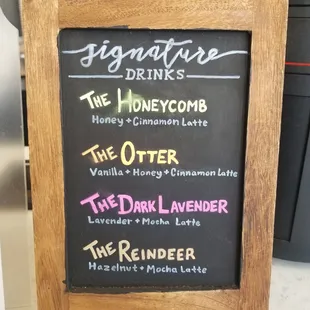 signature
DRINKS
THE HONEYCOMB
Honey + Cinnamon Latte
THE OTTER
Vanilla + Honey + Cinnamon Latte
THE DARK LAVENDER
Lavender + Mosha Latte
THE REINDEER
Hazelnut + Mocha Latte